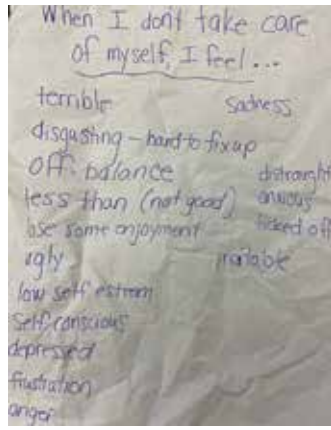 When I don't take care
of myself, I feel...
terrible
disgusting - hard to fix up
off balance
less than (not good)
lose some enjoyment
ugly
low self esteem
self conscious
depressed
frustration
anger
sadness
distraught
anxious
ticked off
irritable